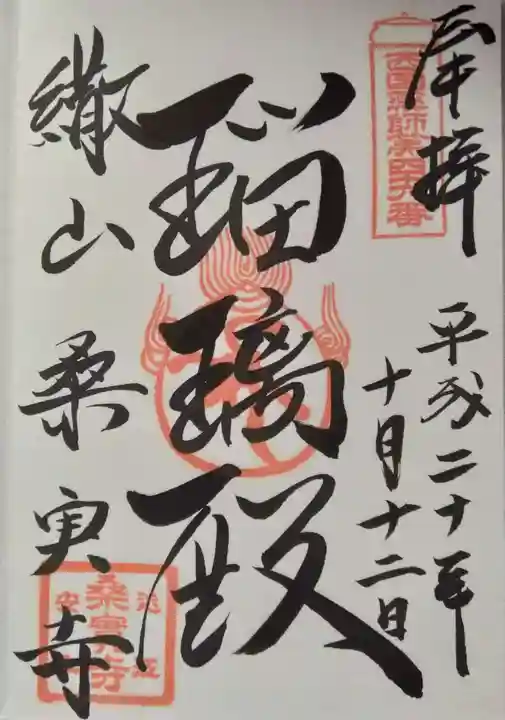 奉拝
西国薬師第四十六番
平成二十年
十月十二日
瑠璃殿
繖山 桑実寺
桑實寺